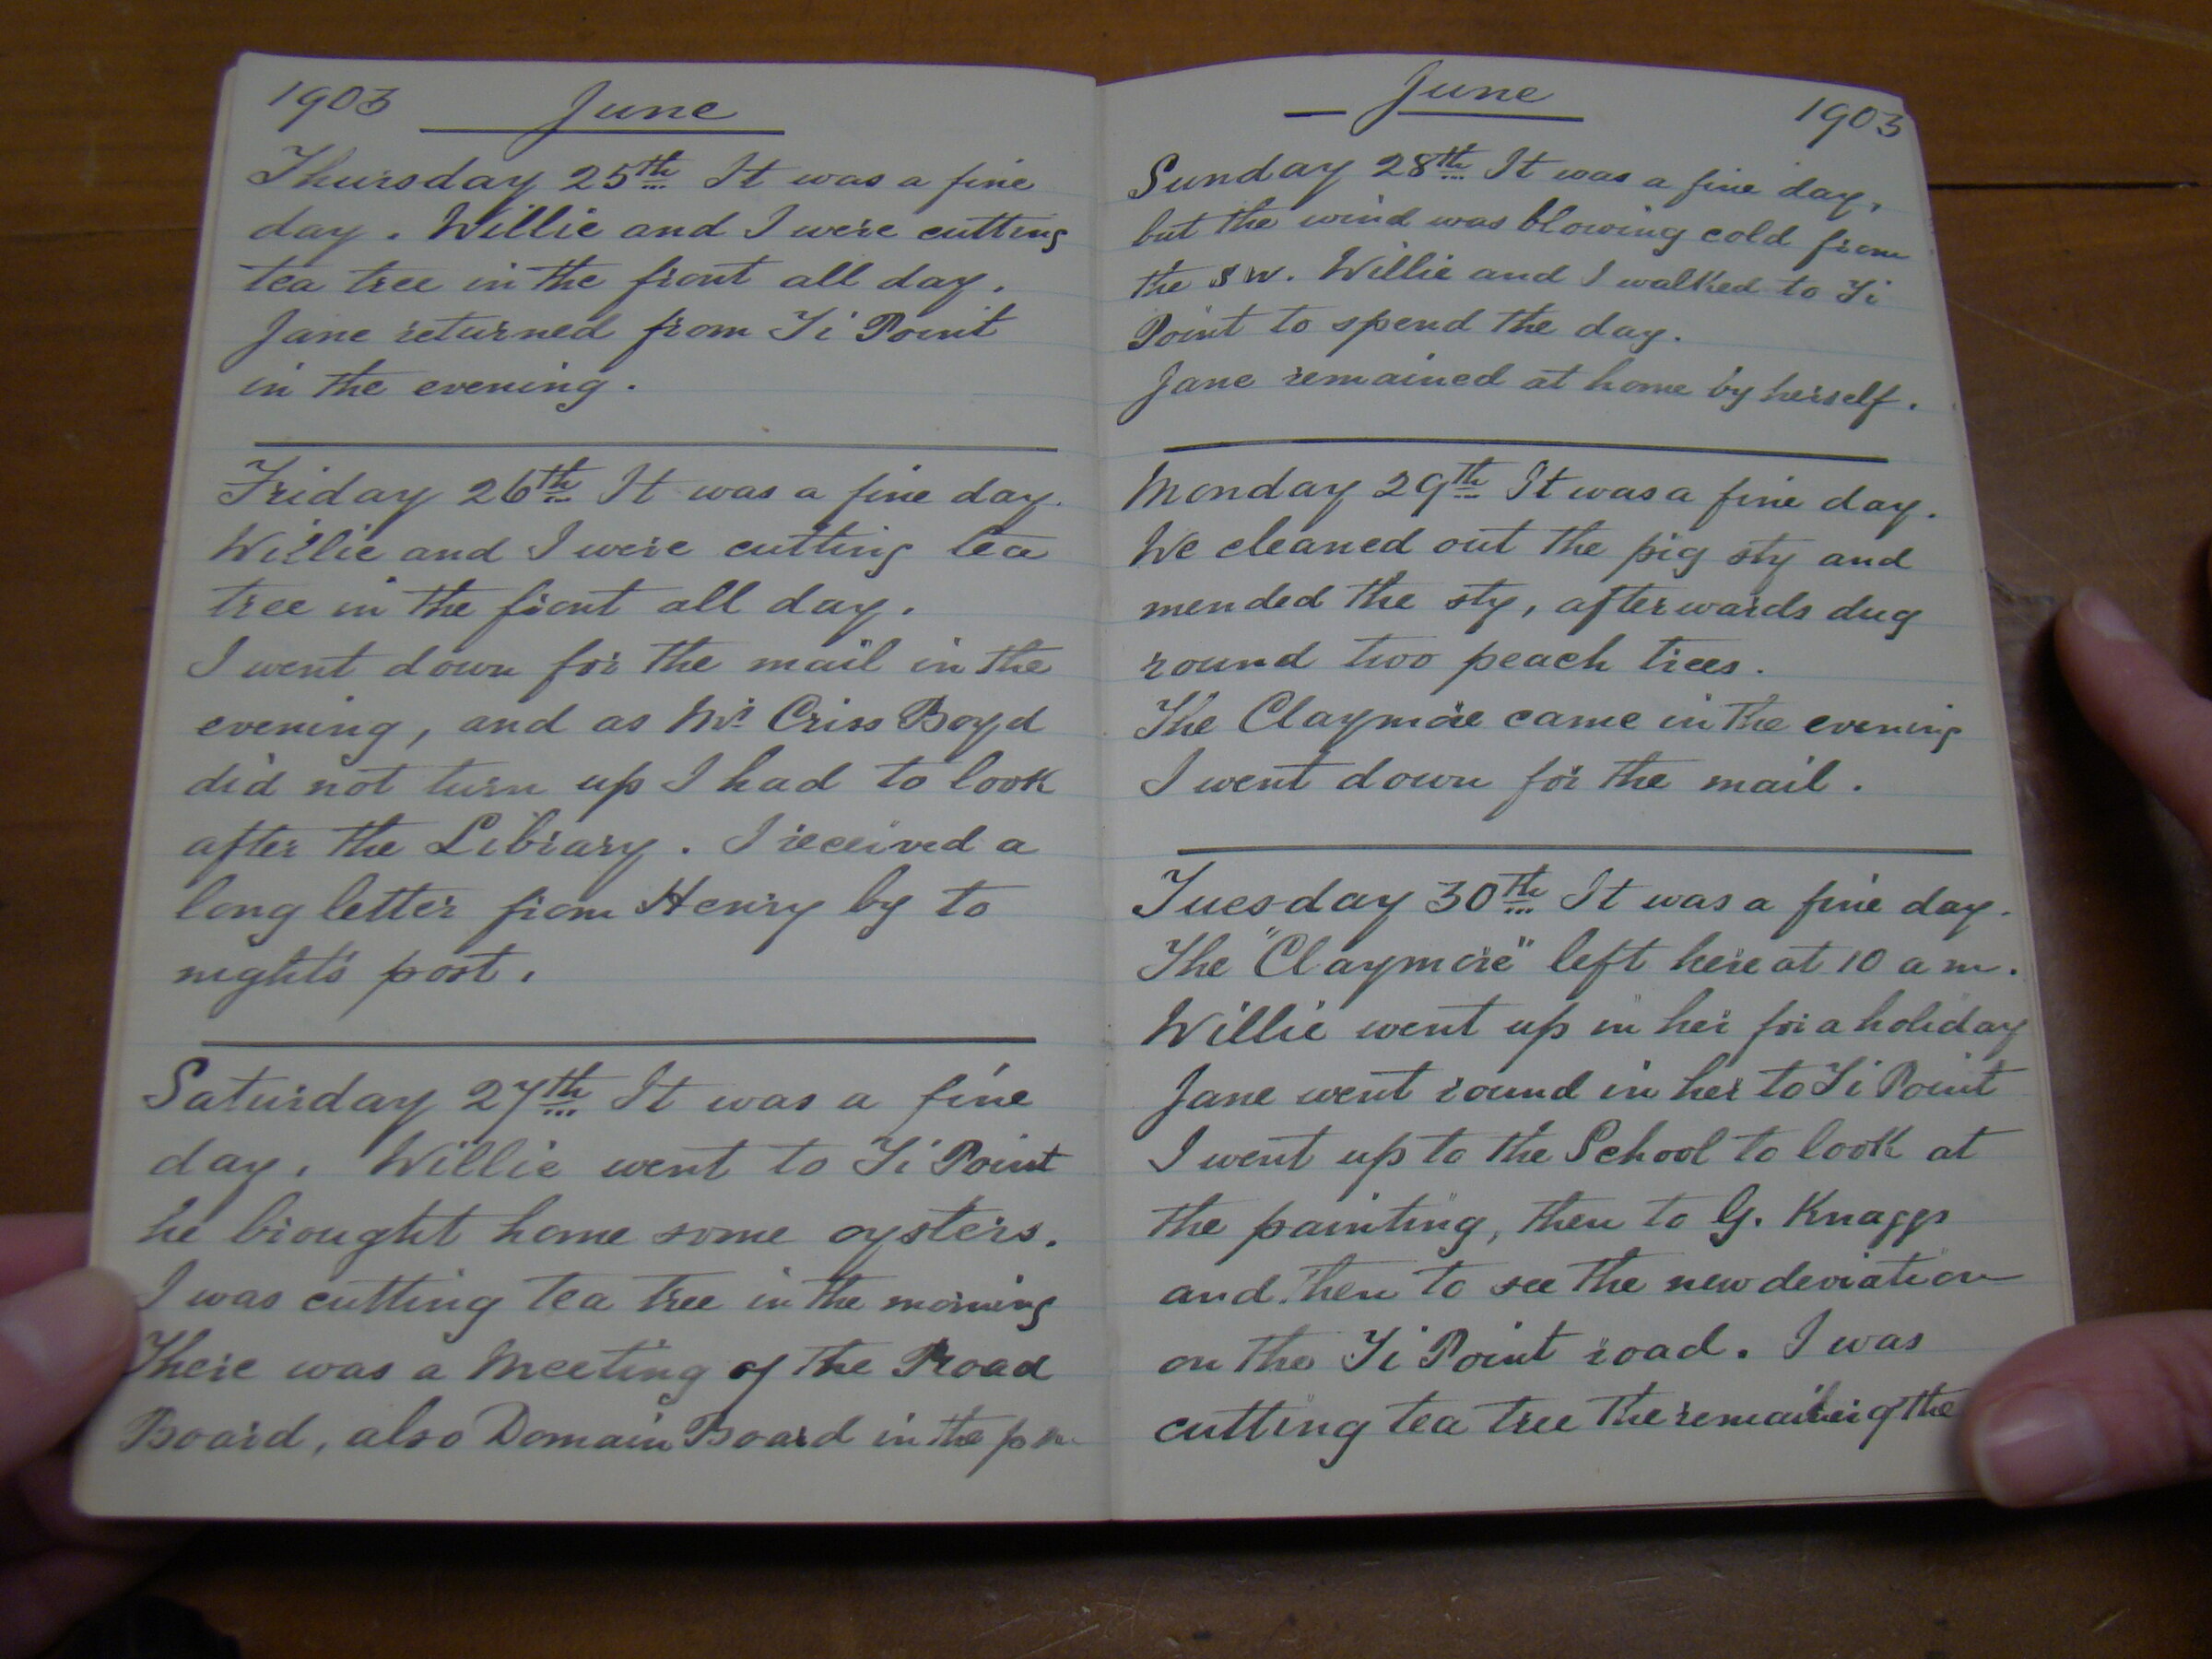 1903 June
Thursday 25th It was a fine
day. Willie and I were cutting
tea tree in the front all day.
Jane returned from Ti Point
in the evening.
Friday 26th It was a fine day.
Willie and I were cutting tea
tree in the front all day.
I went down for the mail in the
evening, and as Mr Criss Boyd
did not turn up I had to look
after the Library. I received a
long letter from Henry by to
night's post.
Saturday 27th It was a fine
day. Willie went to Ti Point
he brought home some oysters.
I was cutting tea tree in the morning
There was a Meeting of the Road
Board, also Domain Board in the pm
June 1903
Sunday 28th It was a fine day,
but the wind was blowing cold from
the SW. Willie and I walked to Ti
Point to spend the day.
Jane remained at home by herself.
Monday 29th It was a fine day.
We cleaned out the pig sty and
mended the sty, afterwards dug
round two peach trees.
The Claymore came in the evening
I went down for the mail.
Tuesday 30th It was a fine day.
The "Claymore" left here at 10 am.
Willie went up in her for a holiday
Jane went round in her to Ti Point
I went up to the School to look at
the painting, then to G. Knaggs
and then to see the new deviation
on the Ti Point road. I was
cutting tea tree the remainder of the